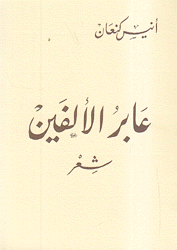 أنيس كنعان
عَابرُ الألفَين
شِعْر